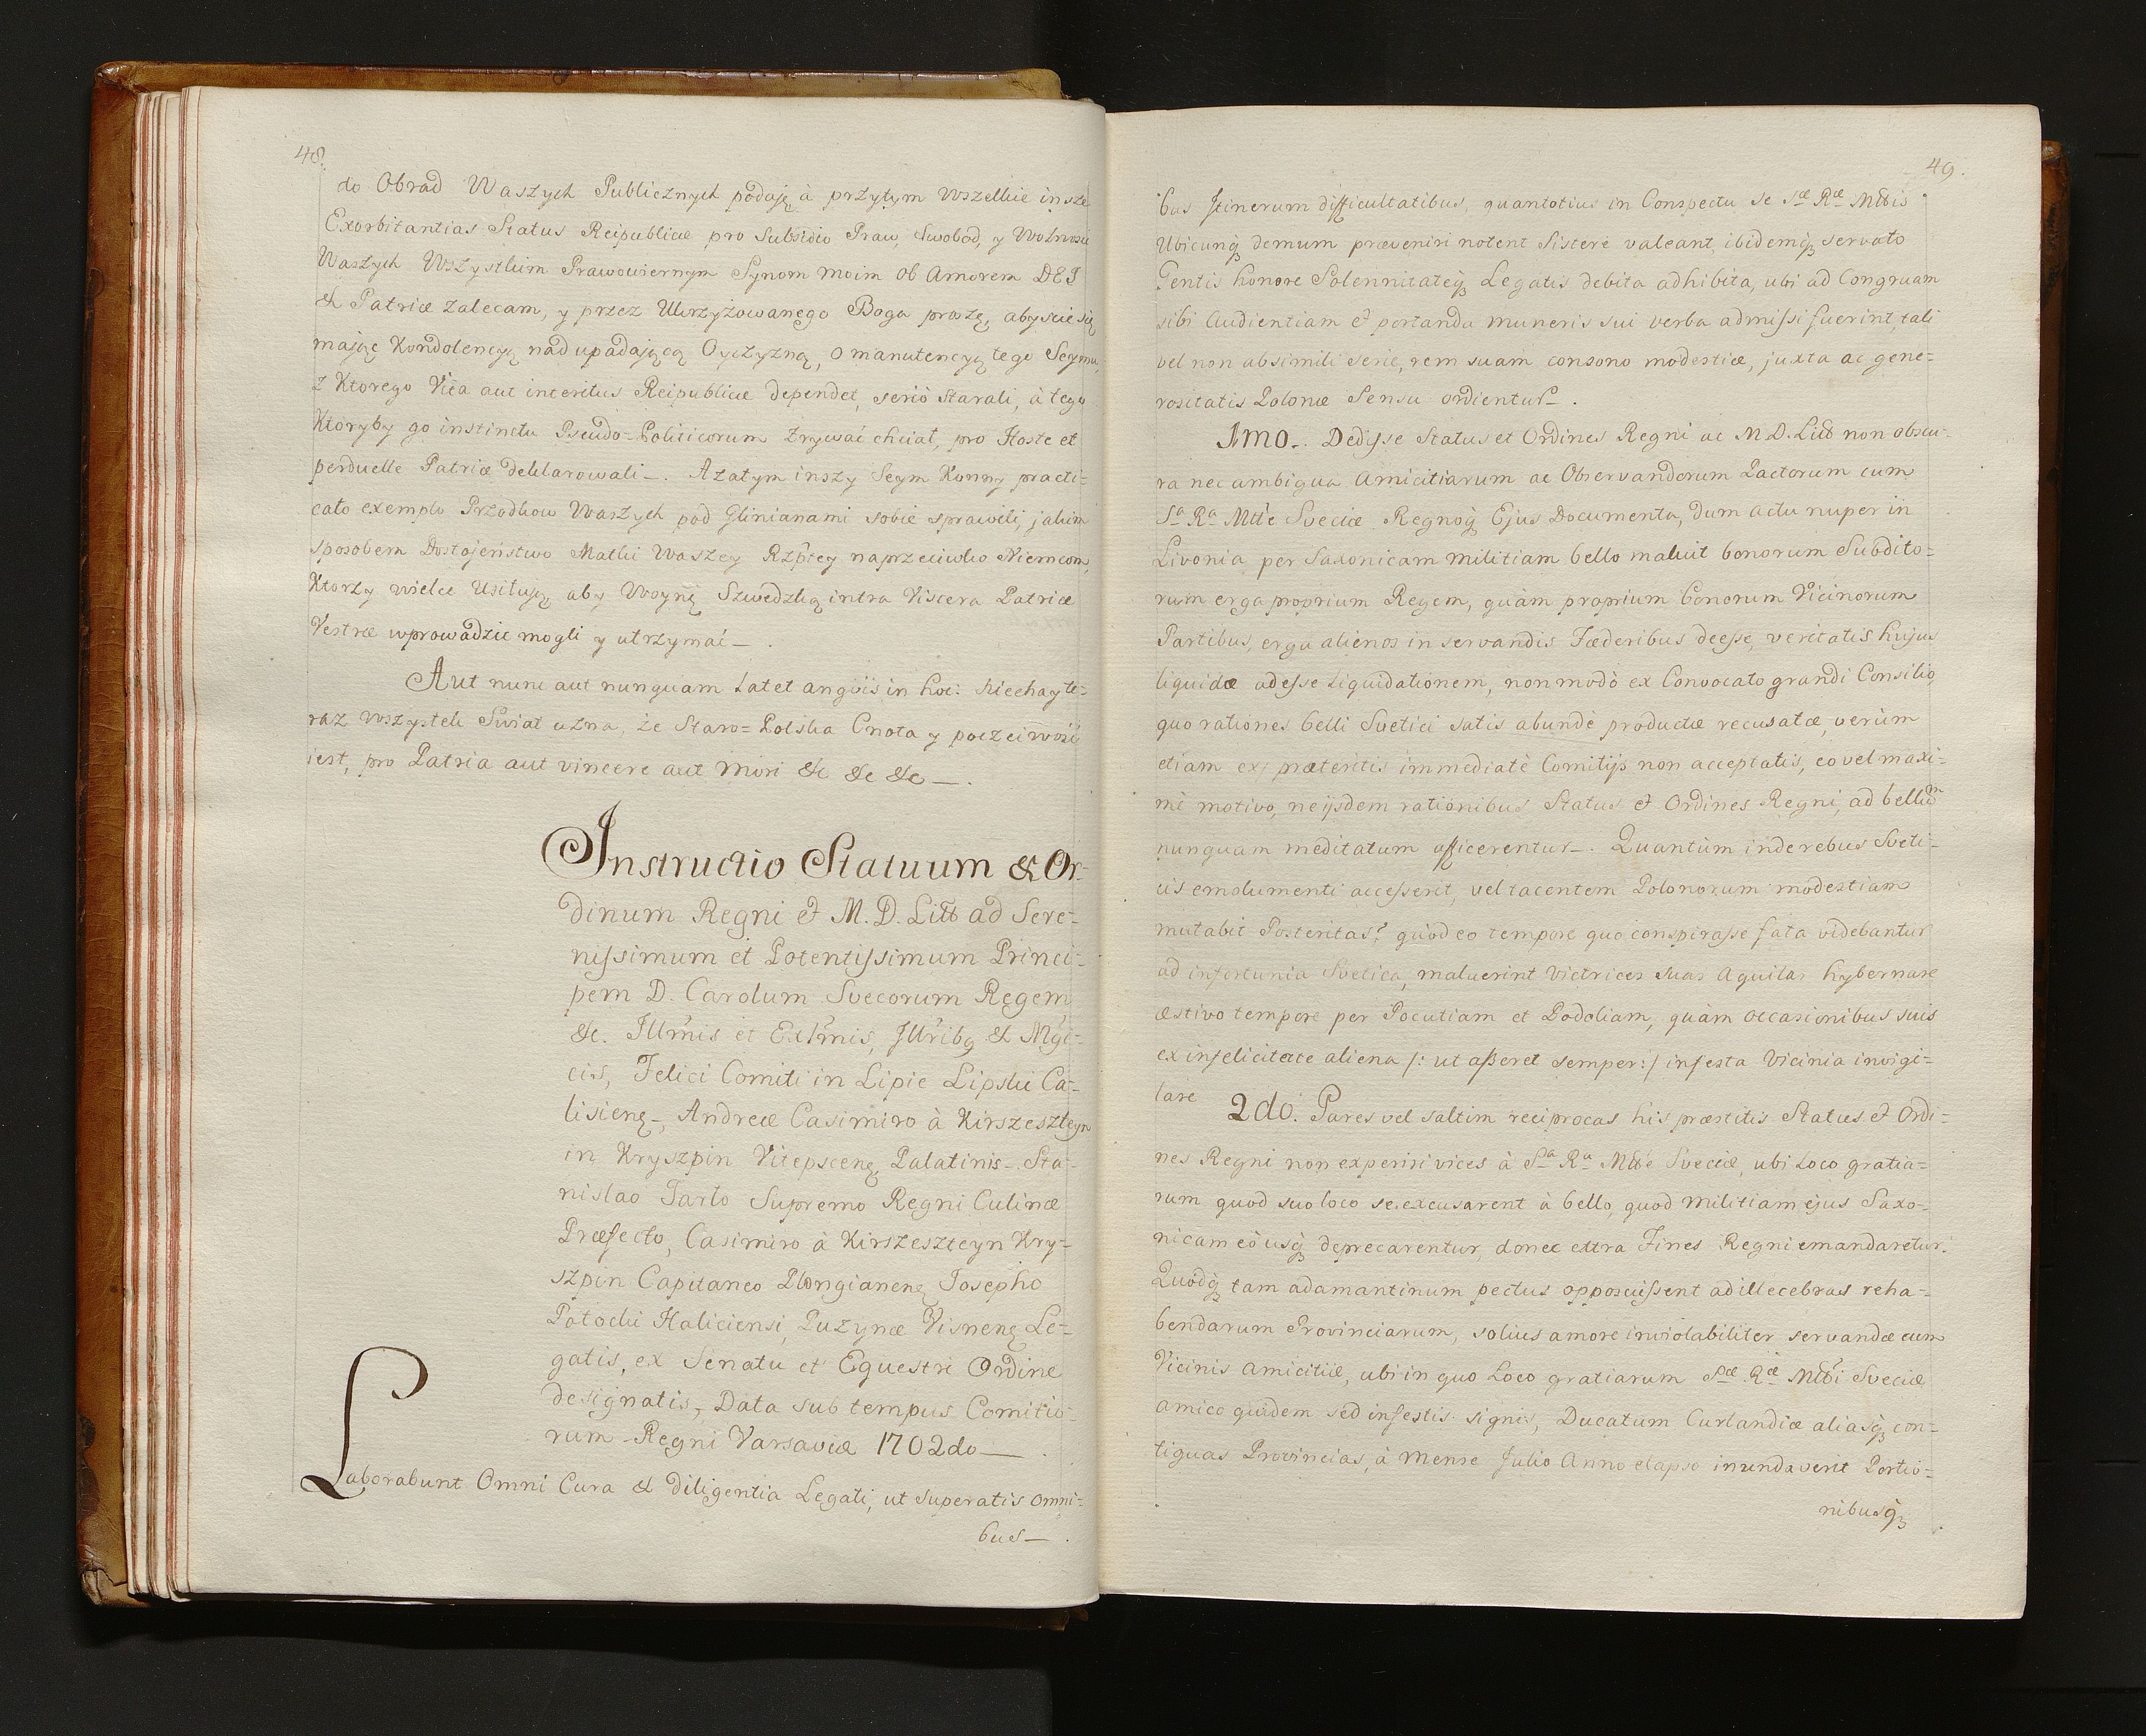 48.
do Obrad Waszych Publicznych podaję à przytym wszelkie insze
Exorbitantias Status Reipublicæ pro Subsidio Praw, Swobod, y Wolnosci
Waszych Wszystkim Prawowiernym Synom moim ob Amorem DEI
& Patriæ zalecam, y przez Ukrzyżowanego Boga proszę, abyscie się
mając Kondolencyą nad upadającą Oyczyzną, o manutencyą tego Seymu,
z Ktorego Vita aut interitus Reipublicæ dependet, seriò starali, à tego
Ktoryby go instinctu Pseudo-Politicorum zrywać chciał, pro Hoste et
perduelle Patriæ deklarowali_. Azatym inszy Seym Konny practi=
cato exemplo Przodkow Waszych pod Glinianami sobie sprawili, jakim
sposobem Dostojeństwo Matki Waszey Rzptey naprzeciwko Niemcom,
Ktorzy wielce Usiłują aby Woynę Szwedzką intra Viscera Patriæ
Vestræ wprowadzic mogli y utrzymać_.
Aut nunc aut nunquam latet angvis in hoc: Niechay te=
raz wszystek Swiat uzna, że Staro=Polska Cnota y poczciwość
iest, pro Patria aut vincere aut mori &c &c &c_.
Instructio Statuum & Or=
dinum Regni et M. D. Litt ad Sere=
nissimum et Potentissimum Princi=
pem D. Carolum Svecorum Regem
&c. Illmis et Exlmis, Illribq & Mgi=
cis, Felici Comiti in Lipie Lipski Ca=
lisieng_, Andreæ Casimiro à Kirszeszteyn
in Kryszpin Vitepsceng Palatinis_. Sta=
nislao Tarło Supremo Regni Culinæ
Præfecto, Casimiro à Kirszeszteyn Kry=
szpin Capitaneo Płongianeng Josepho
Potocki Haliciensi, Puzynæ Visneng Le=
gatis, ex Senatu et Equestri Ordine
designatis, Data sub tempus Comitio=
rum Regni Varsaviæ 1702do_.
Laborabunt Omni Cura & diligentia Legati, ut superatis omni=
bus_.
49.
bus Itinerum difficultatibus, quantotius in Conspectu se Sæ Ræ Mttis
Ubicunq demum præveniri notent Sistere valeant, ibidemq servato
Gentis honore Solennitateq Legatis debita adhibita, ubi ad Congruam
sibi Audientiam et portanda muneris sui verba admissi fuerint, tali
vel non absimili Serie, rem suam consono modestiæ, juxta ac gene=
rositatis Polonæ Sensu ordientur_.
1mo_. Dedisse Status et Ordines Regni ac M D. Litt non obscu=
ra nec ambigua Amicitiarum ac Observandorum Pactorum cum
Sa Ra Mtte Sveciæ Regnoq Ejus Documenta, dum actu nuper in
Livonia per Saxonicam militiam bello maluit bonorum Subdito=
rum erga proprium Regem, quàm proprium bonorum Vicinorum
Partibus, erga alienos in servandis Fæderibus deesse, veritatis hujus
liquidæ adesse liquidationem, non modò ex Convocato grandi Consilio,
quo rationes belli Svetici satis abundè productæ recusatæ, verùm
etiam ex præteritis immediatè Comitijs non acceptatis, eo vel maxi=
mè motivo, ne ijsdem rationibus Status et Ordines Regni, ad bellum
nunquam meditatum afficerentur_. Quantùm inde rebus Sveti=
cis emolumenti accesserit, vel tacentem Polonorum modestiam
mutabit Posteritas? quòd eo tempore quo conspirasse fata videbantur
ad infortunia Svetica, maluerint victrices suas Aquilas hybernare
æstivo tempore per Pocutiam et Podoliam, quàm occasionibus suis
ex infelicitate aliena /: ut asseret semper :/ infesta Vicinia invigi=
lare
2do. Pares vel saltim reciprocas his præstitis Status et Ordi=
nes Regni non experiri vices à Sa Ra Mtte Sveciæ, ubi Loco gratia=
rum quod suo loco se excusarent à bello, quod militiam ejus Saxo=
nicam eò usq deprecarentur, donec extra Fines Regni emandaretur.
Quòdq tam adamantinum pectus opposuissent ad illecebras reha=
bendarum Provinciarum, solius amore inviolabiliter servandæ cum
Vicinis Amicitiæ, ubi in quo Loco gratiarum Sæ Ræ Mtti Sveciæ
amico quidem sed infestis signis, Ducatum Curlandiæ aliasq con=
tiguas Provincias, à Mense Julio Anno elapso inundaverit Portio=
nibusq